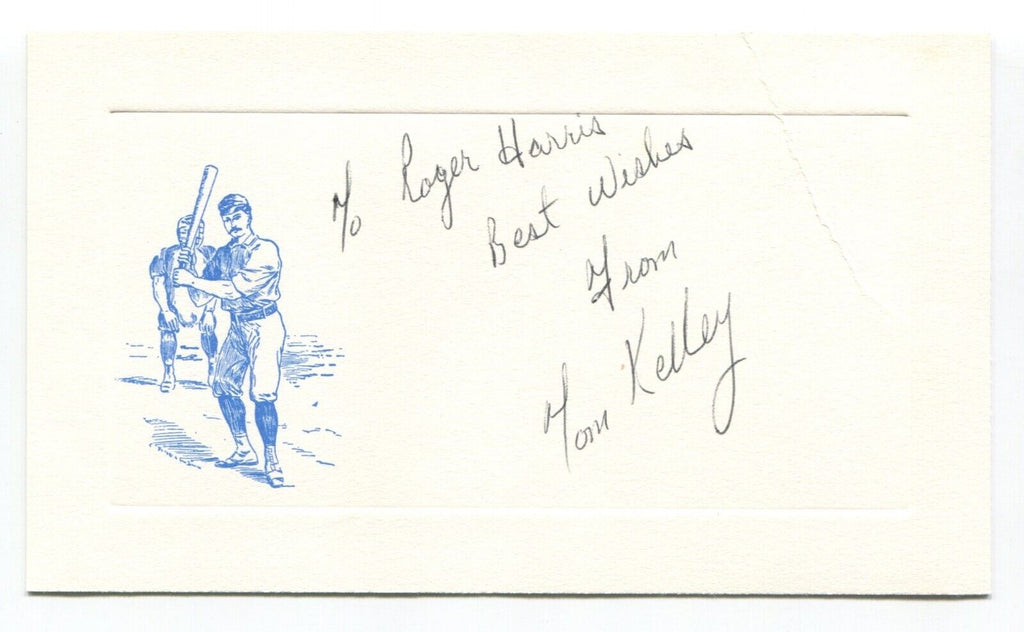 To Roger Harris
Best Wishes
From
Tom Kelley